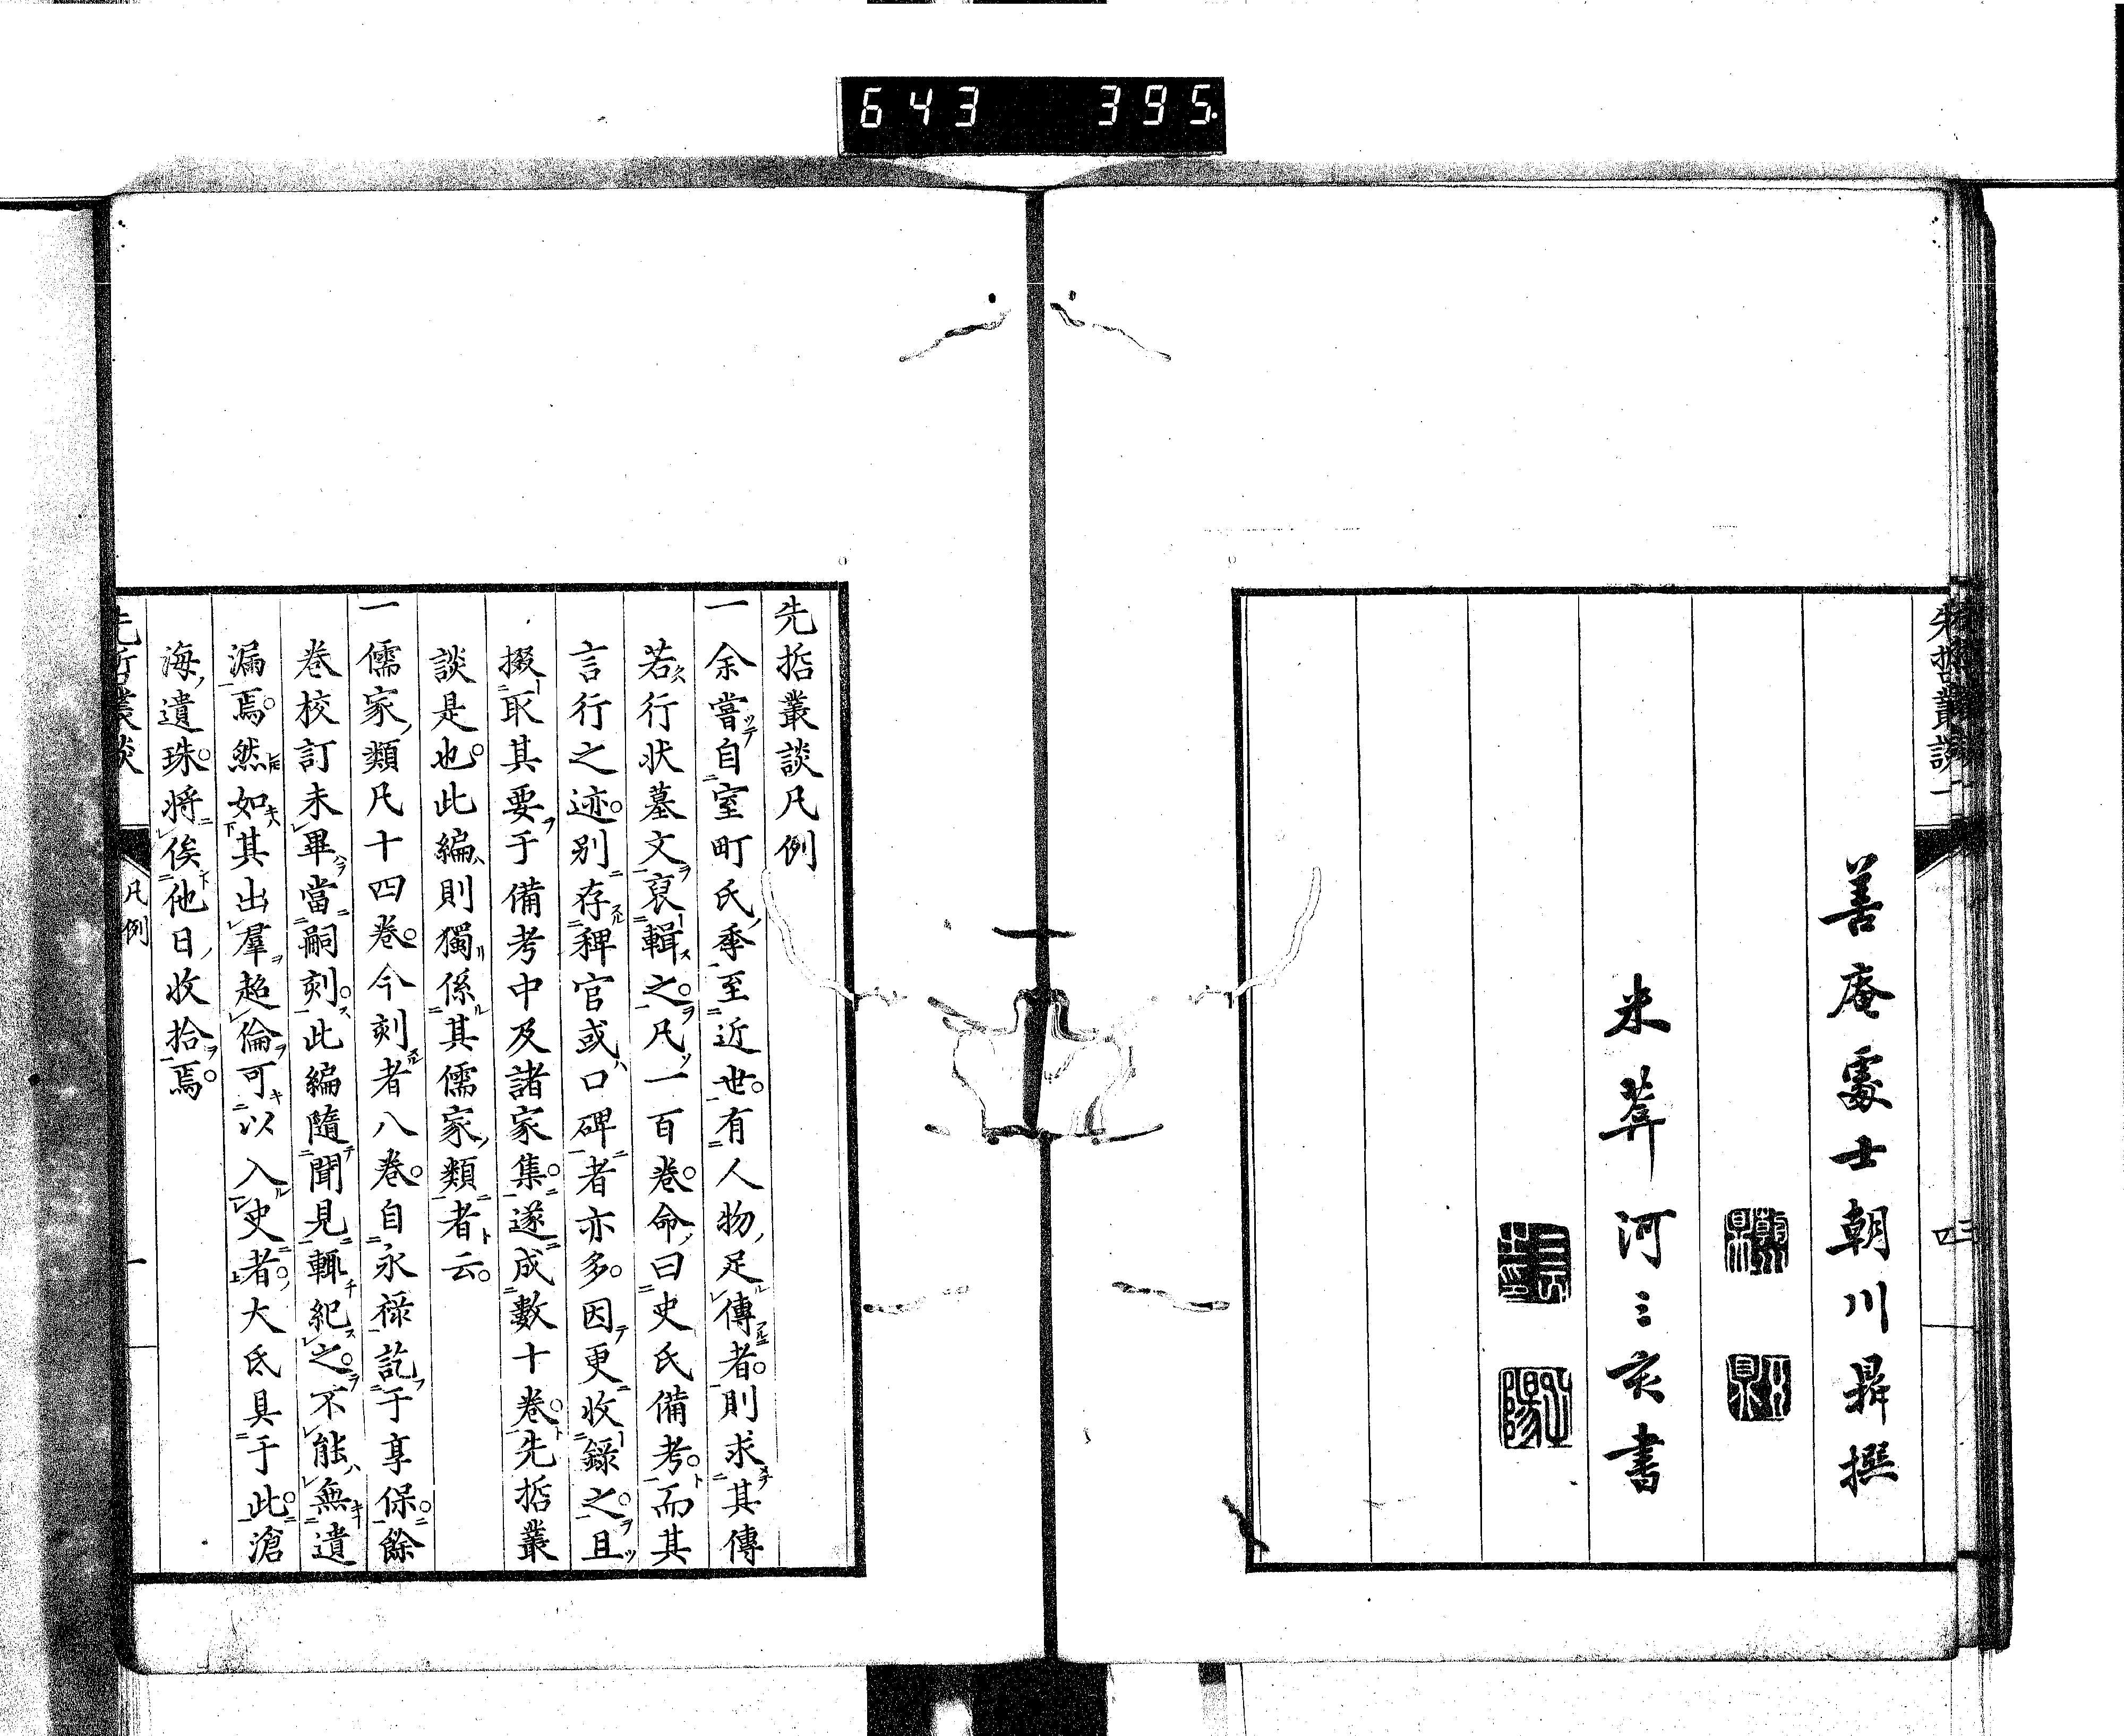 643 395
善庵處士朝川鼎撰
米葊河三亥書
先哲叢談凡例
一余嘗自室町氏季至近世有人物足傳者則求其傳
若行狀墓文裒輯之凡一百卷命曰史氏備考而其
言行之迹別存稗官或口碑者亦多因更收錄之且
掇取其要于備考中及諸家集遂成數十卷先哲叢
談是也此編則獨係其儒家類者云
一儒家類凡十四卷今刻者八卷自永祿訖于享保餘
卷校訂未畢當嗣刻此編隨聞見輒紀之不能無遺
漏焉然如其出羣超倫可以入史者大氐具于此滄
海遺珠將俟他日收拾焉
先哲叢談
凡例
一